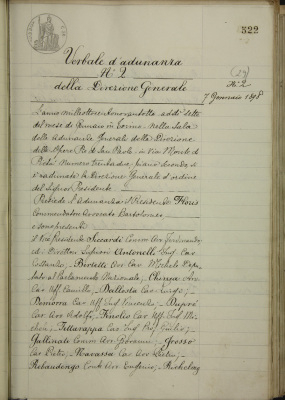 322
Verbale d'adunanza
N. 2
della Direzione Generale
N. 2
7 Gennaio 1898
L'anno milleottocentonovantotto addì sette
del mese di Gennaio in Torino, nella Sala
delle Adunanze Generali della Direzione
delle Opere Pie di San Paolo, in Via Monte di
Pietà, Numero trentadue, piano secondo si
è radunata la Direzione Generale d'ordine
del Signor Presidente
Presiede l'adunanza il Presidente Floris
Commendatore Avvocato Bartolomeo
e sono presenti
il Vice Presidente Siccardi Comm Avv Ferdinando
ed i Direttori Signori Antonelli Ing. Cav
Costanzo, Biscaretti Avv Cav
al Parlamento Nazionale, Chiesa
Cav Uff Camillo, Ballesta Cav
Cav Uff Ing
Cav Avv Adolfo, Cav Uff Ing
Cav Ing
Gallinati Comm Avv Giovanni, Grosso
Cav Pietro, Marassa Cav Avv
Rebaudengo Conte Avv Eugenio, Richelmy